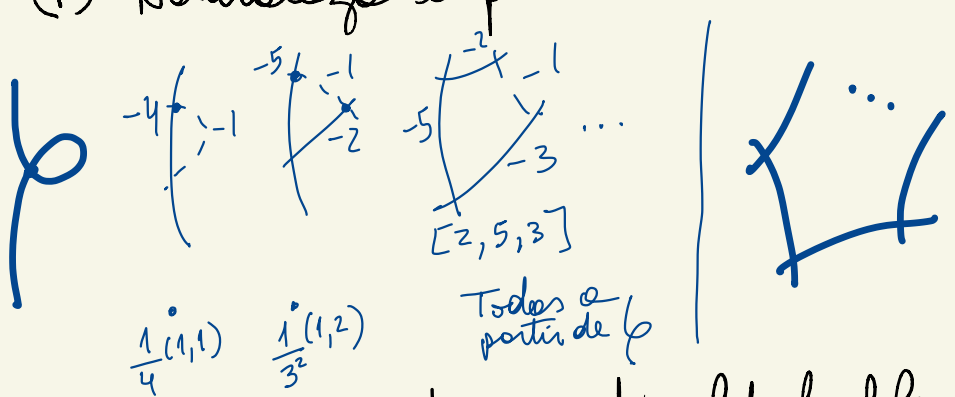 -4 -1
-5 -1 -2
-2 -1 -5 -3 ...
[2,5,3]
1/4 (1,1)
1/3² (1,2)
Todos a
partir de